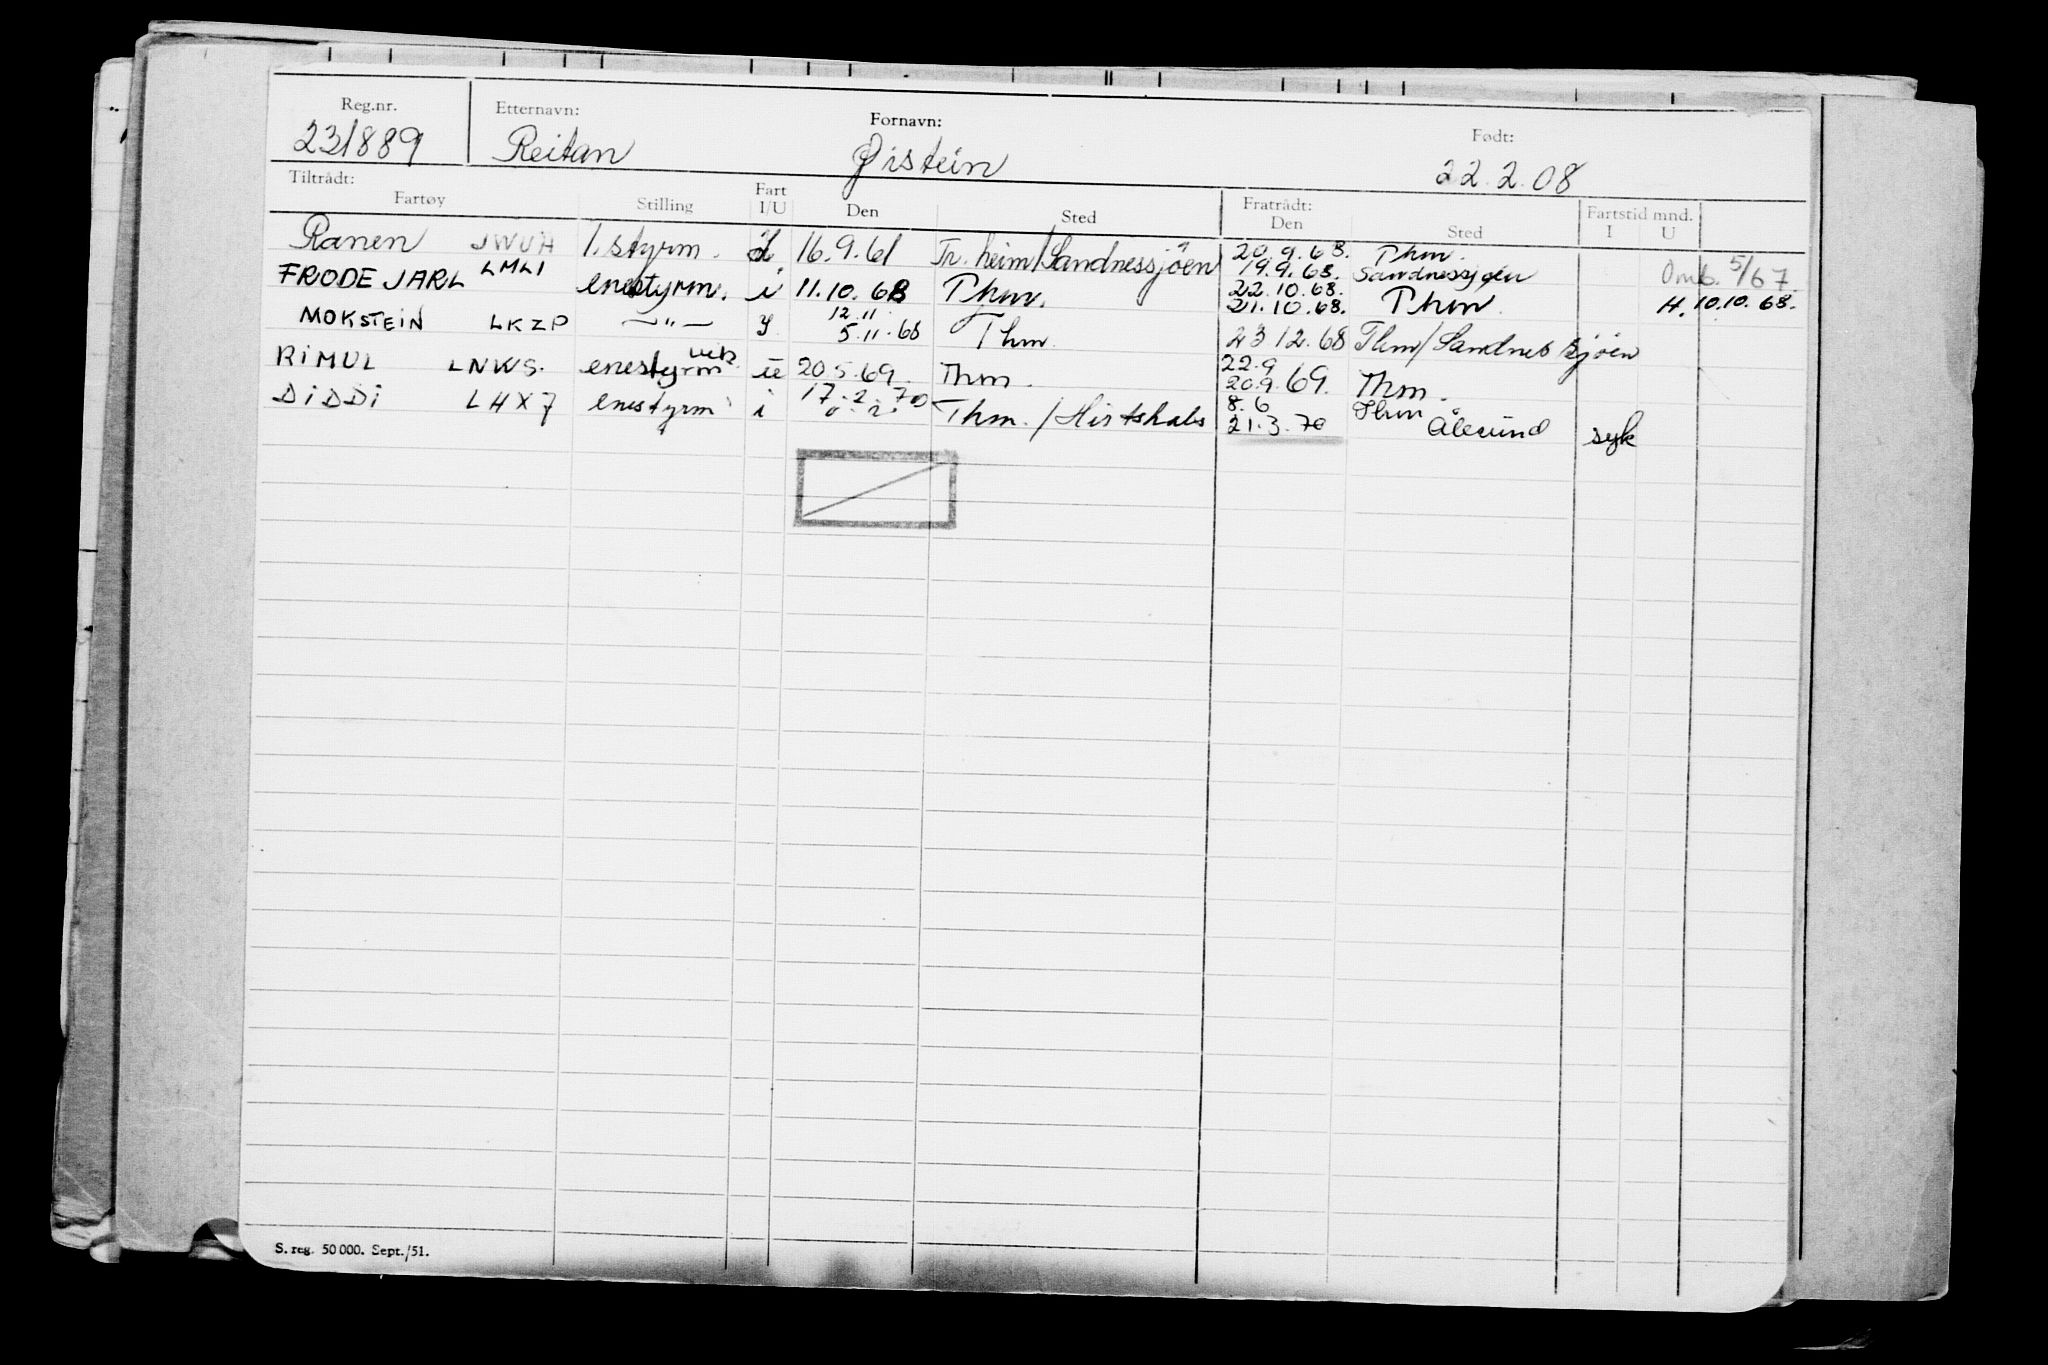 Reg.nr. Etternavn: Fornavn: Født:
23/889 Reitan Øistein 22.2.08
Tiltrådt: Fratrådt: Fartstid mnd.
Fartøy Stilling Fart I/U Den Sted Den Sted I U
Ranen JWUA 1. styrm. 16.9.61 Tr.heim/Sandnessjöen 20.9.68. Thm.
19.9.68. Sandnessjøen Omb. 5/67.
FRODE JARL LMLI enestyrm. i 11.10.68 Thm. 22.10.68.
21.10.68. Thm. H. 10.10.68.
MOKSTEiN LKZP —"— y 12.11.
5.11.68 Thm. 23 12.68 Thm/Sandnessjöen
RiMUL LNWS. enestyrm vik. u 20.5.69. Thm. 22.9
20.9.69. Thm.
DiDDi LHX7 enestyrm i 17.2.70 Thm./Hirtshals 8.6 Thm
21.3.70 Ålesund syk
S. reg. 50 000. Sept./51.